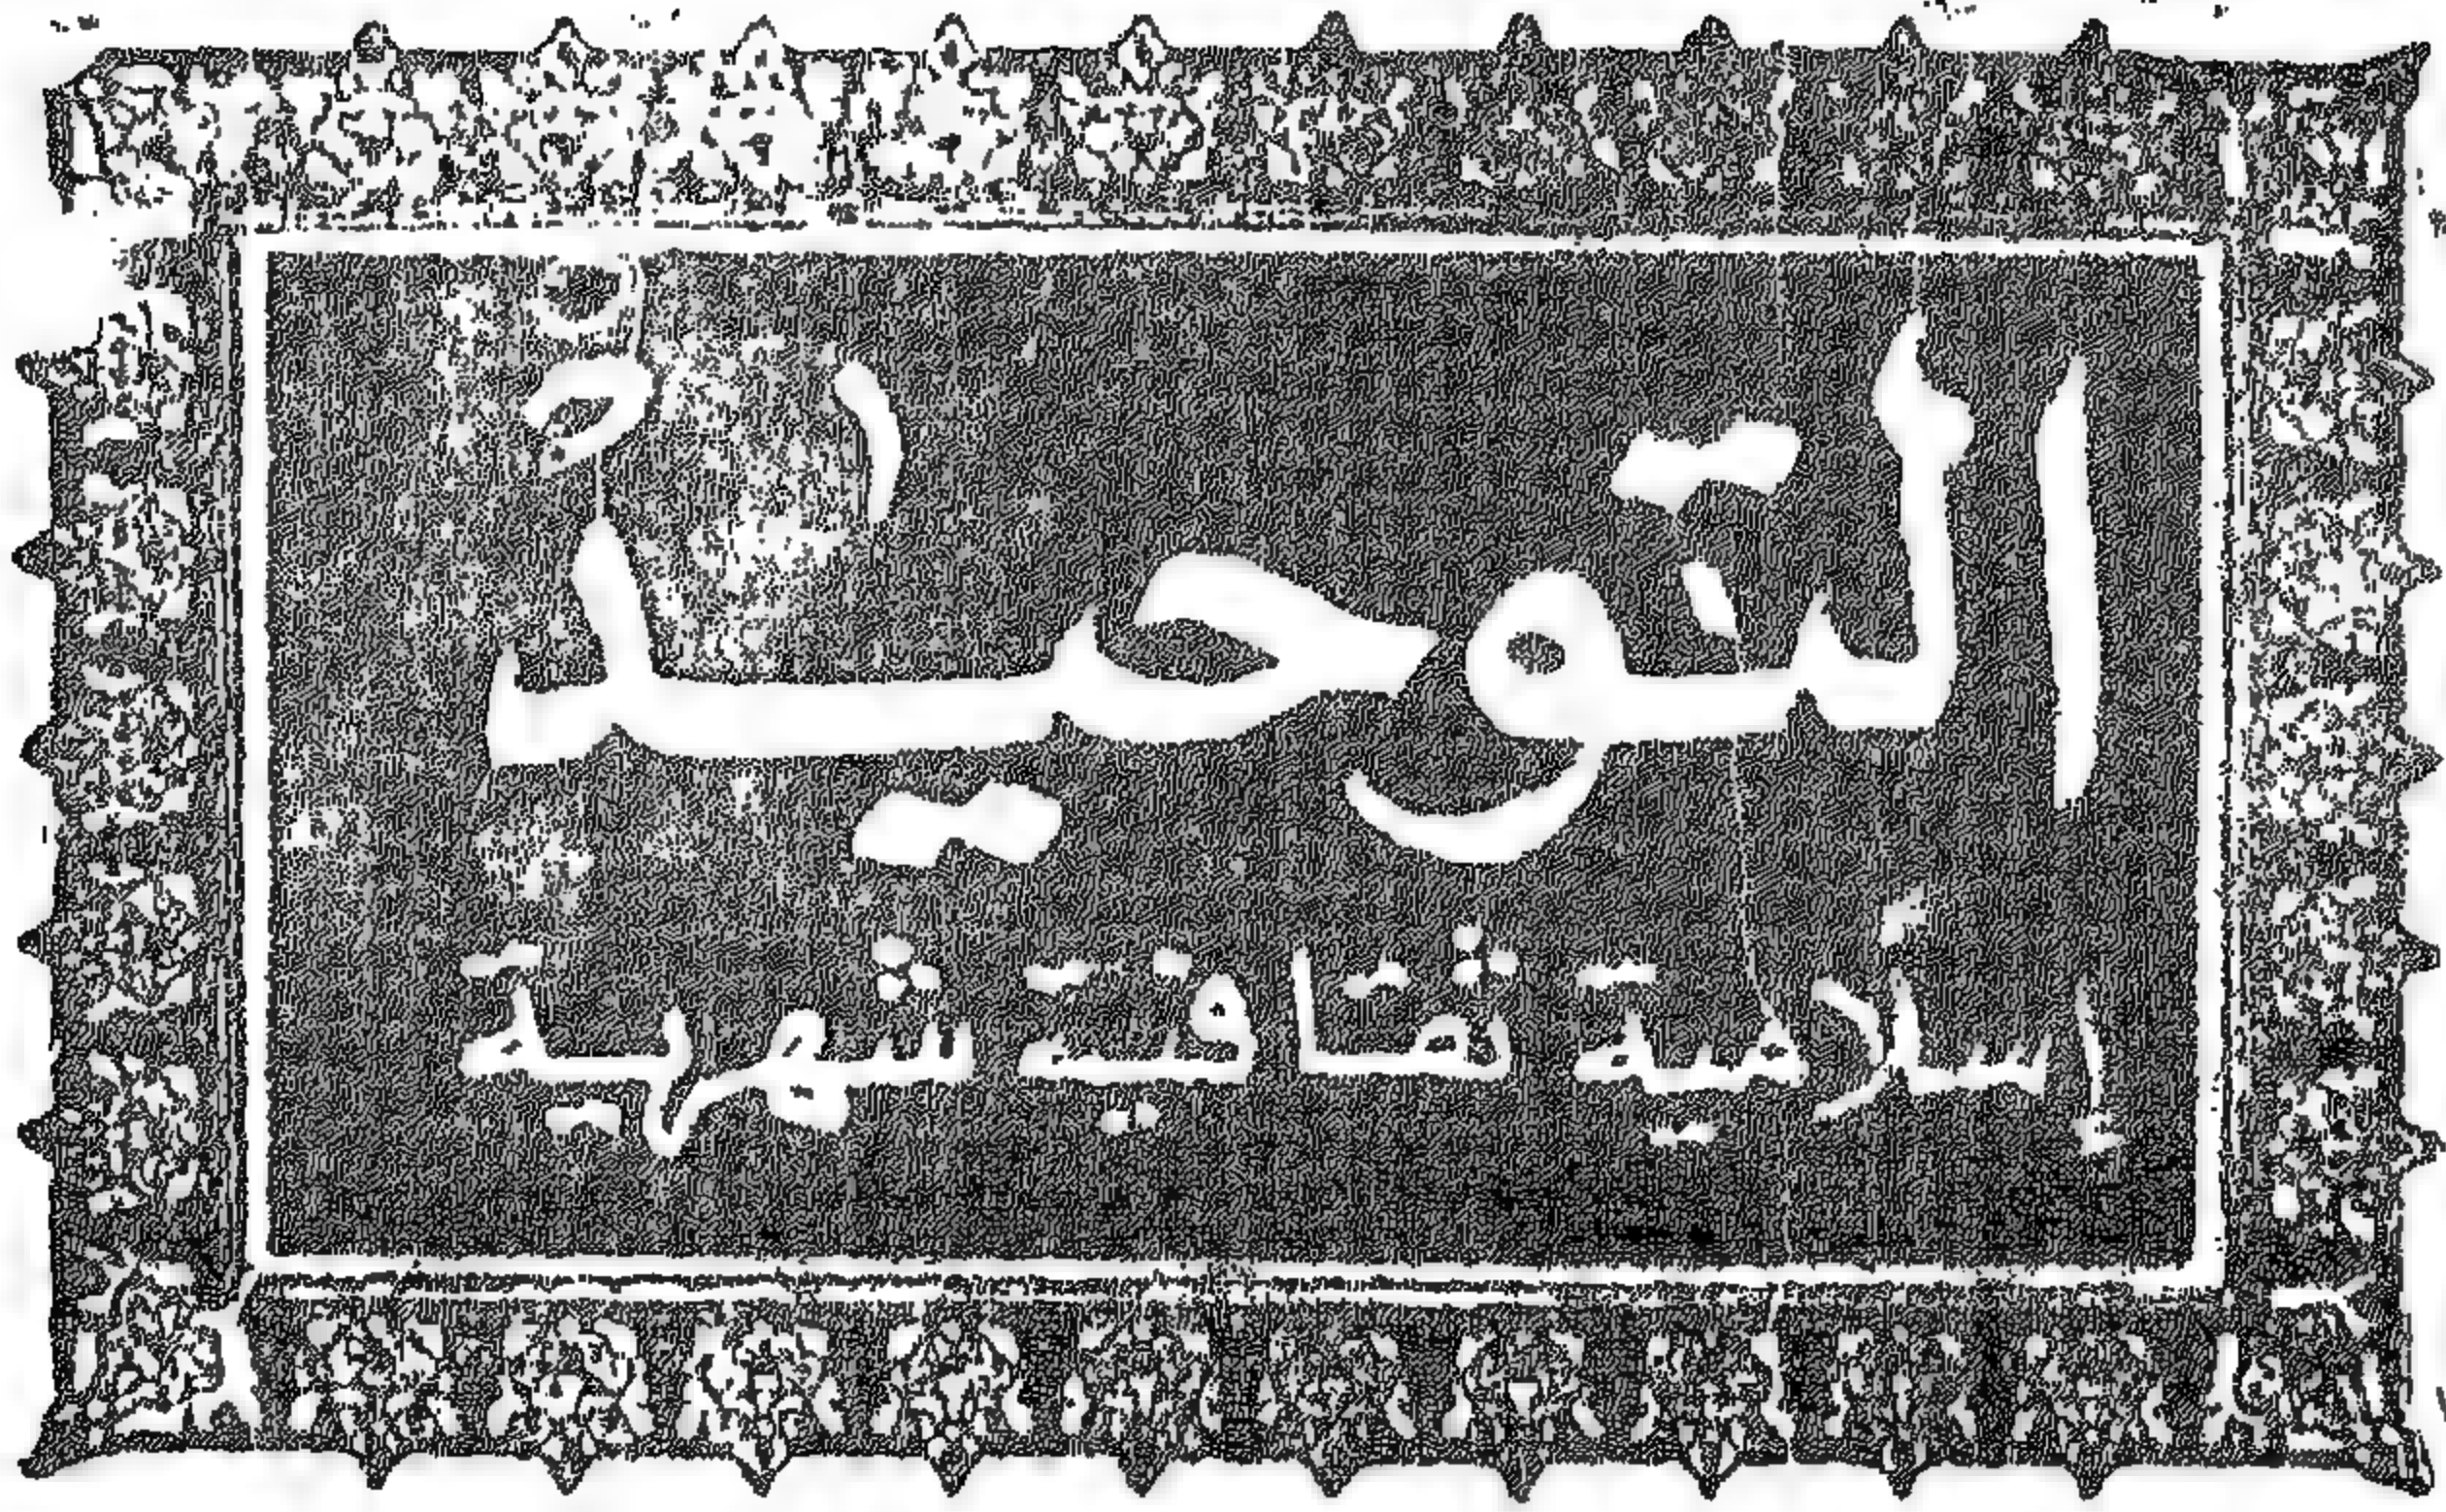 التوحيد
إسلامية ثقافية شهرية